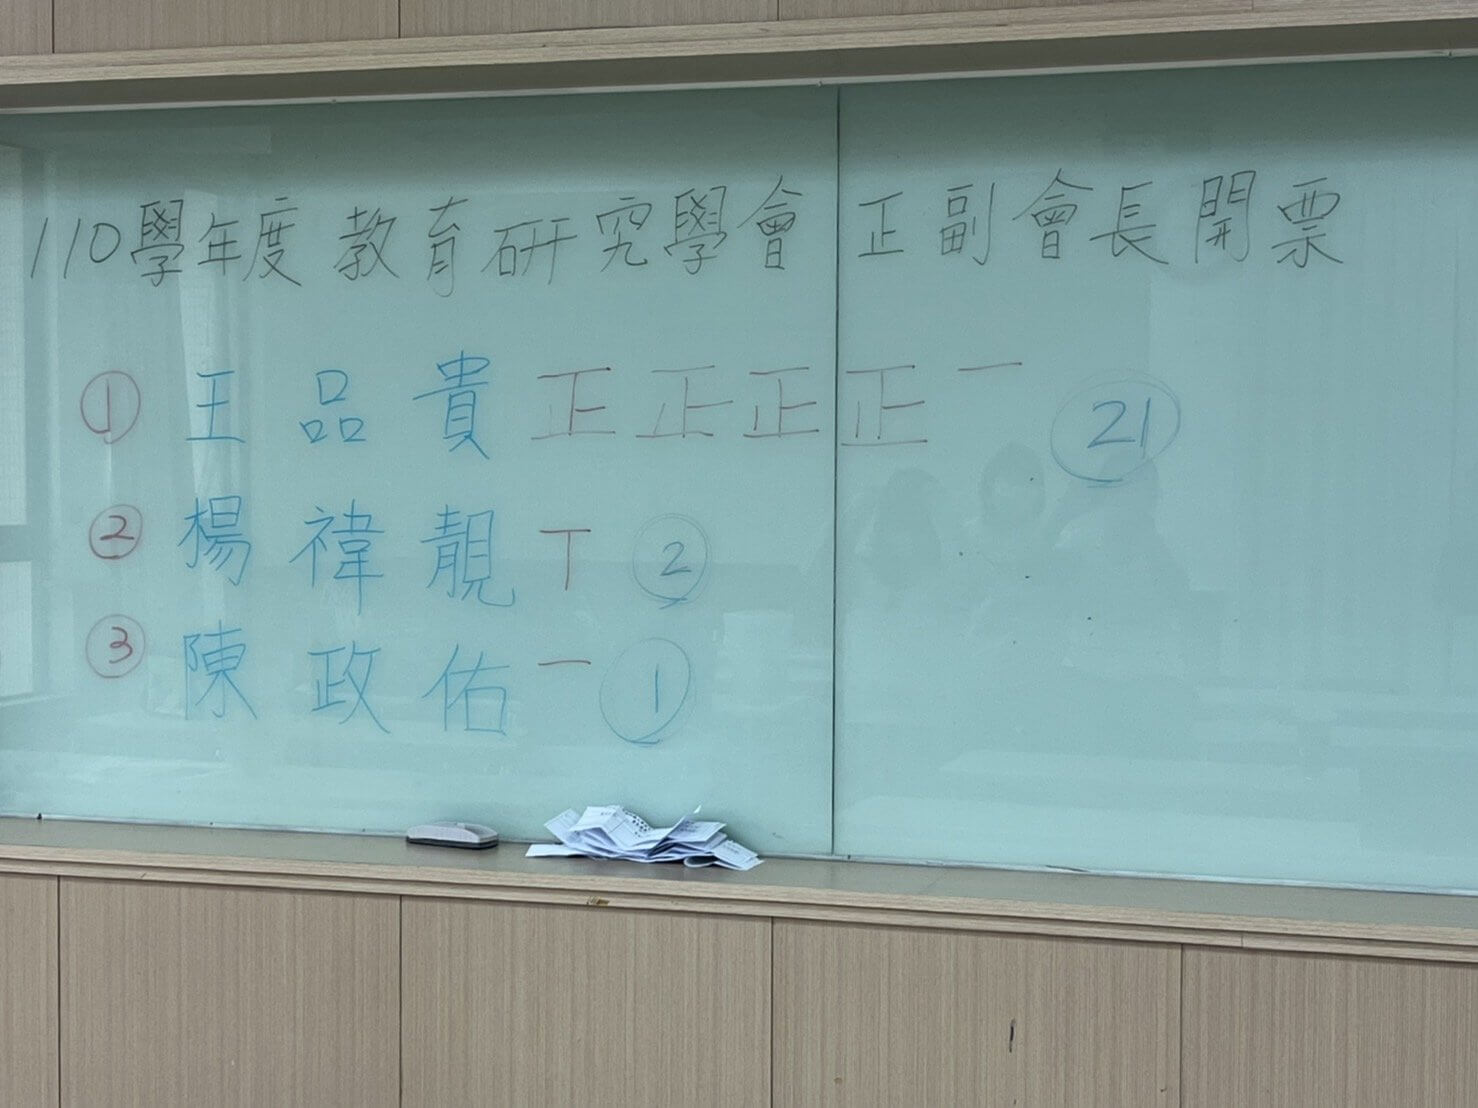 110學年度 教育研究學會 正副會長開票
① 王品貴 正正正正一 21
② 楊禕靚 丅 2
③ 陳政佑 一 1